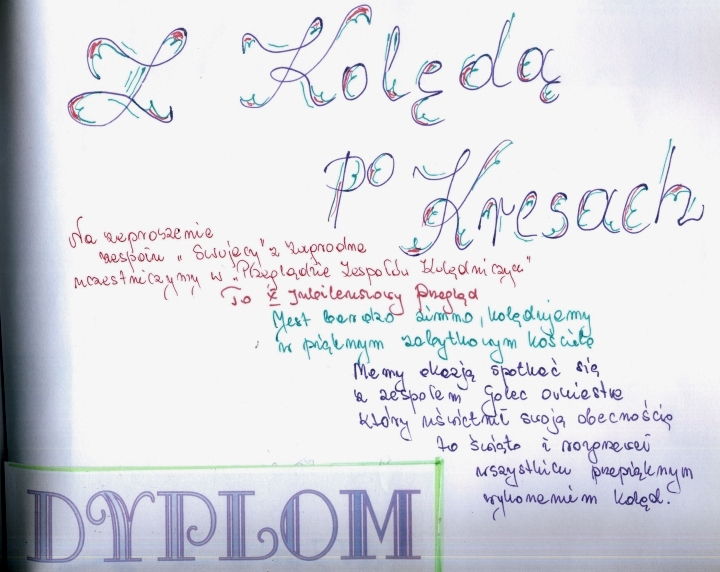 Z Kolędą
po Kresach
Na zaproszenie
zespołu „Swojacy" z Zagrodna
uczestniczymy w „Przeglądzie Zespołów Kolędniczych"
To X Jubileuszowy Przegląd
Jest bardzo zimno, kolędujemy
w pięknym zabytkowym kościele
Mamy okazją spotkać się
z zespołem Golec orkiestra
który uświetnił swoją obecnością
to święto i rozgrzewał
wszystkich przepięknym
wykonaniem kolęd.
DYPLOM